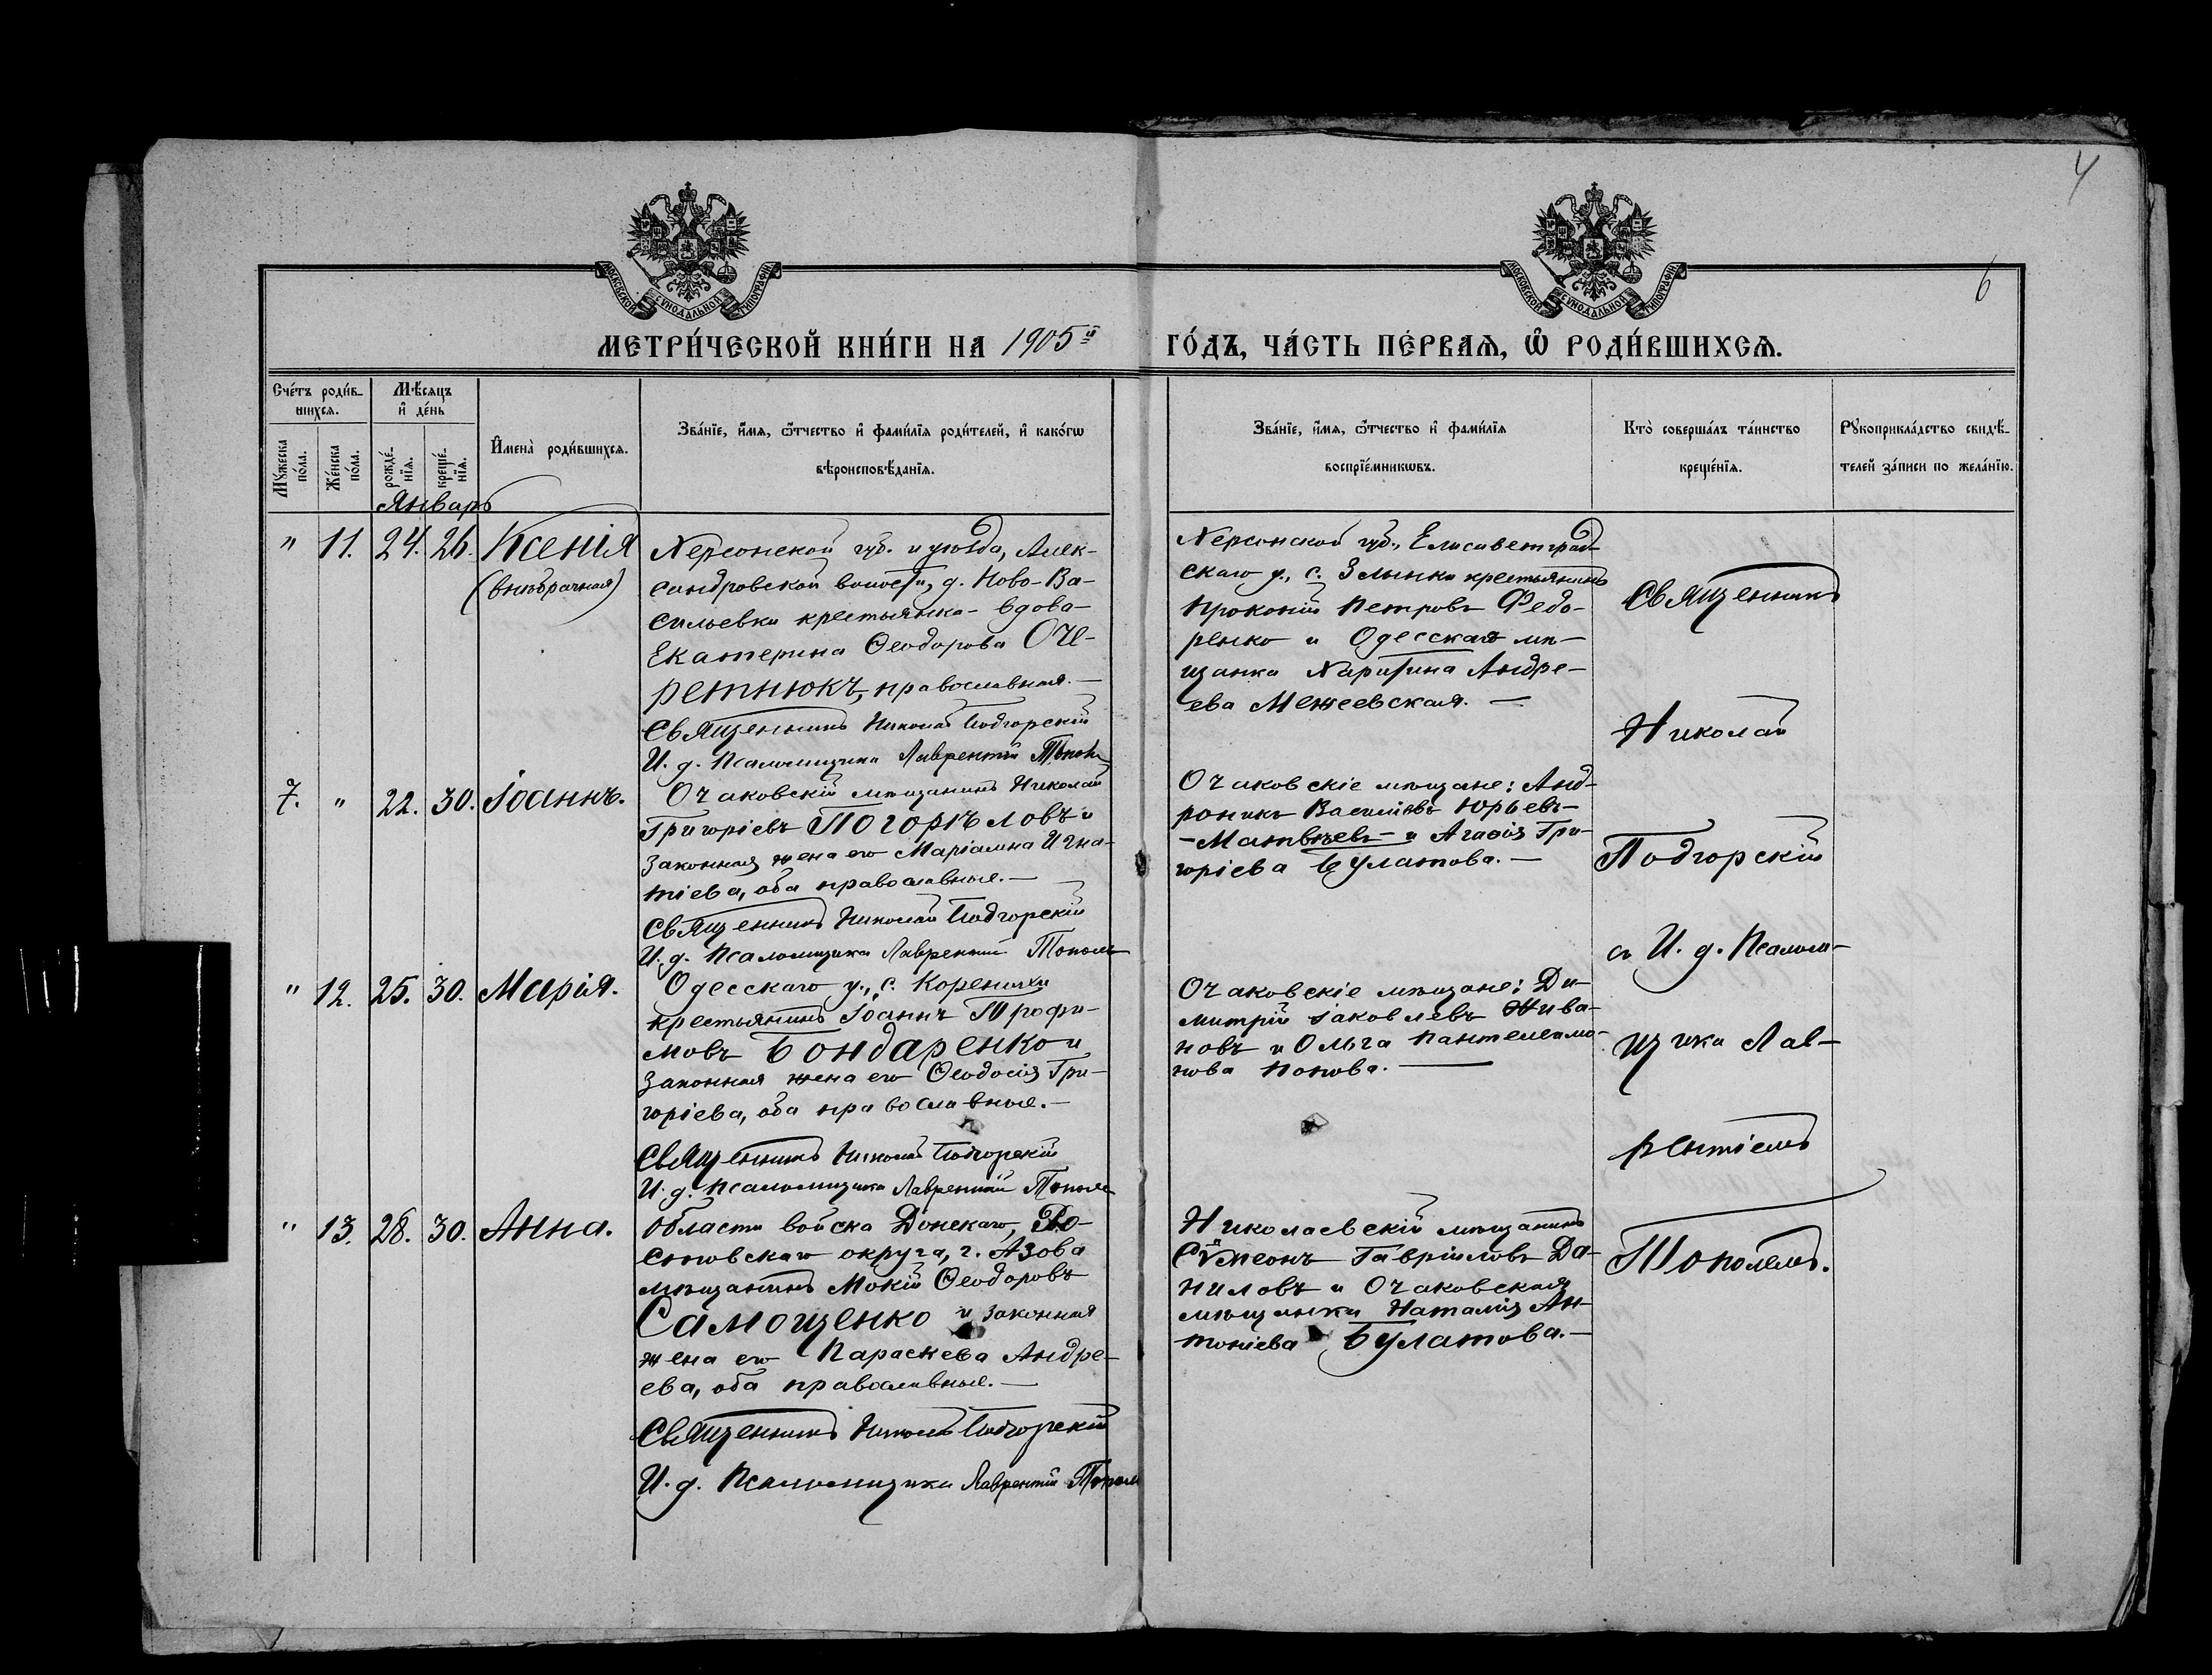 4
6
МОСКОВСКОЙ СѴНОДАЛЬНОЙ ТИПОГРАФІИ
МОСКОВСКОЙ СѴНОДАЛЬНОЙ ТИПОГРАФІИ
МЕТРИ́ЧЕСКОЙ КНИ́ГИ НА 1905й
ГО́ДЪ, ЧА́СТЬ ПЕ́РВАѦ, Ѡ҆ РОДИ́ВШИХСѦ.
Сче́тъ роди́в-
шихсѧ.
Мꙋ́жеска
по́ла.
Же́нска
по́ла.
Мѣ́сѧцъ
и҆ де́нь
рожде́-
нїѧ.
креще́-
нїѧ.
И҆мена̀ роди́вшихсѧ.
Зва́нїе, и҆́мѧ, ѻ҆́тчество и҆ фами́лїѧ роди́телей, и҆ како́гѡ
вѣроисповѣ́данїѧ.
Зва́нїе, и҆́мѧ, ѻ҆́тчество и҆ фами́лїѧ
воспрїе́мникѡвъ.
Кто̀ соверша́лъ та́инство
креще́нїѧ.
Рꙋкоприкла́дство свидѣ́-
телей за́писи по жела́нїю.
Январь
" 11. 24. 26. Ксенія
(внѣбрачная)
Херсонской губ. и уѣзда, Алек-
сандровской волости, д. Ново-Ва-
сильевки крестьянка-вдова
Екатерина Ѳеодорова Оче-
ретнюкъ, православная.—
Священникъ Николай Подгорскій
И. д. Псаломщика Лаврентій Тополь
Херсонской губ., Елисаветград-
скаго у., с. Злынки крестьянинъ
Прокопій Петровъ Федо-
ренко и Одесская мѣ-
щанка Харитина Андре-
ева Межеевская.—
7. " 22. 30. Іоаннъ.
Очаковскій мѣщанинъ Николай
Григоріевъ Погорѣловъ и
законная жена его Маріамна Игна-
тіева, оба православные.—
Священникъ Николай Подгорскій
И. д. Псаломщика Лаврентій Тополь
Очаковскіе мѣщане: Анд-
роникъ Васильевъ Юрьевъ-
-Матвѣевъ- и Агаѳія Гри-
горіева Булатова.—
" 12. 25. 30. Марія.
Одесскаго у., с. Коренихи
крестьянинъ Іоаннъ Трофи-
мовъ Бондаренко и
законная жена его Ѳеодосія Гри-
горіева, оба православные.—
Священникъ Николай Подгорскій
И. д. Псаломщика Лаврентій Тополь
Очаковскіе мѣщане: Ди-
митрій Іаковлевъ Жива-
новъ и Ольга Пантелеимо-
нова Попова.—
" 13. 28. 30. Анна.
Области войска Донскаго, Ро-
стовскаго округа, г. Азова
мѣщанинъ Мокій Ѳеодоровъ
Самощенко и законная
жена его Параскева Андре-
ева, оба православные.—
Священникъ Николай Подгорскій
И. д. Псаломщика Лаврентій Тополь
Николаевскій мѣщанинъ
Сѵмеонъ Гавріиловъ Да-
ниловъ и Очаковская
мѣщанка Наталія Ан-
тоніева Булатова.—
Священникъ
Николай
Подгорскій
съ И. д. Псалом-
щика Лав-
рентіемъ
Тополемъ.